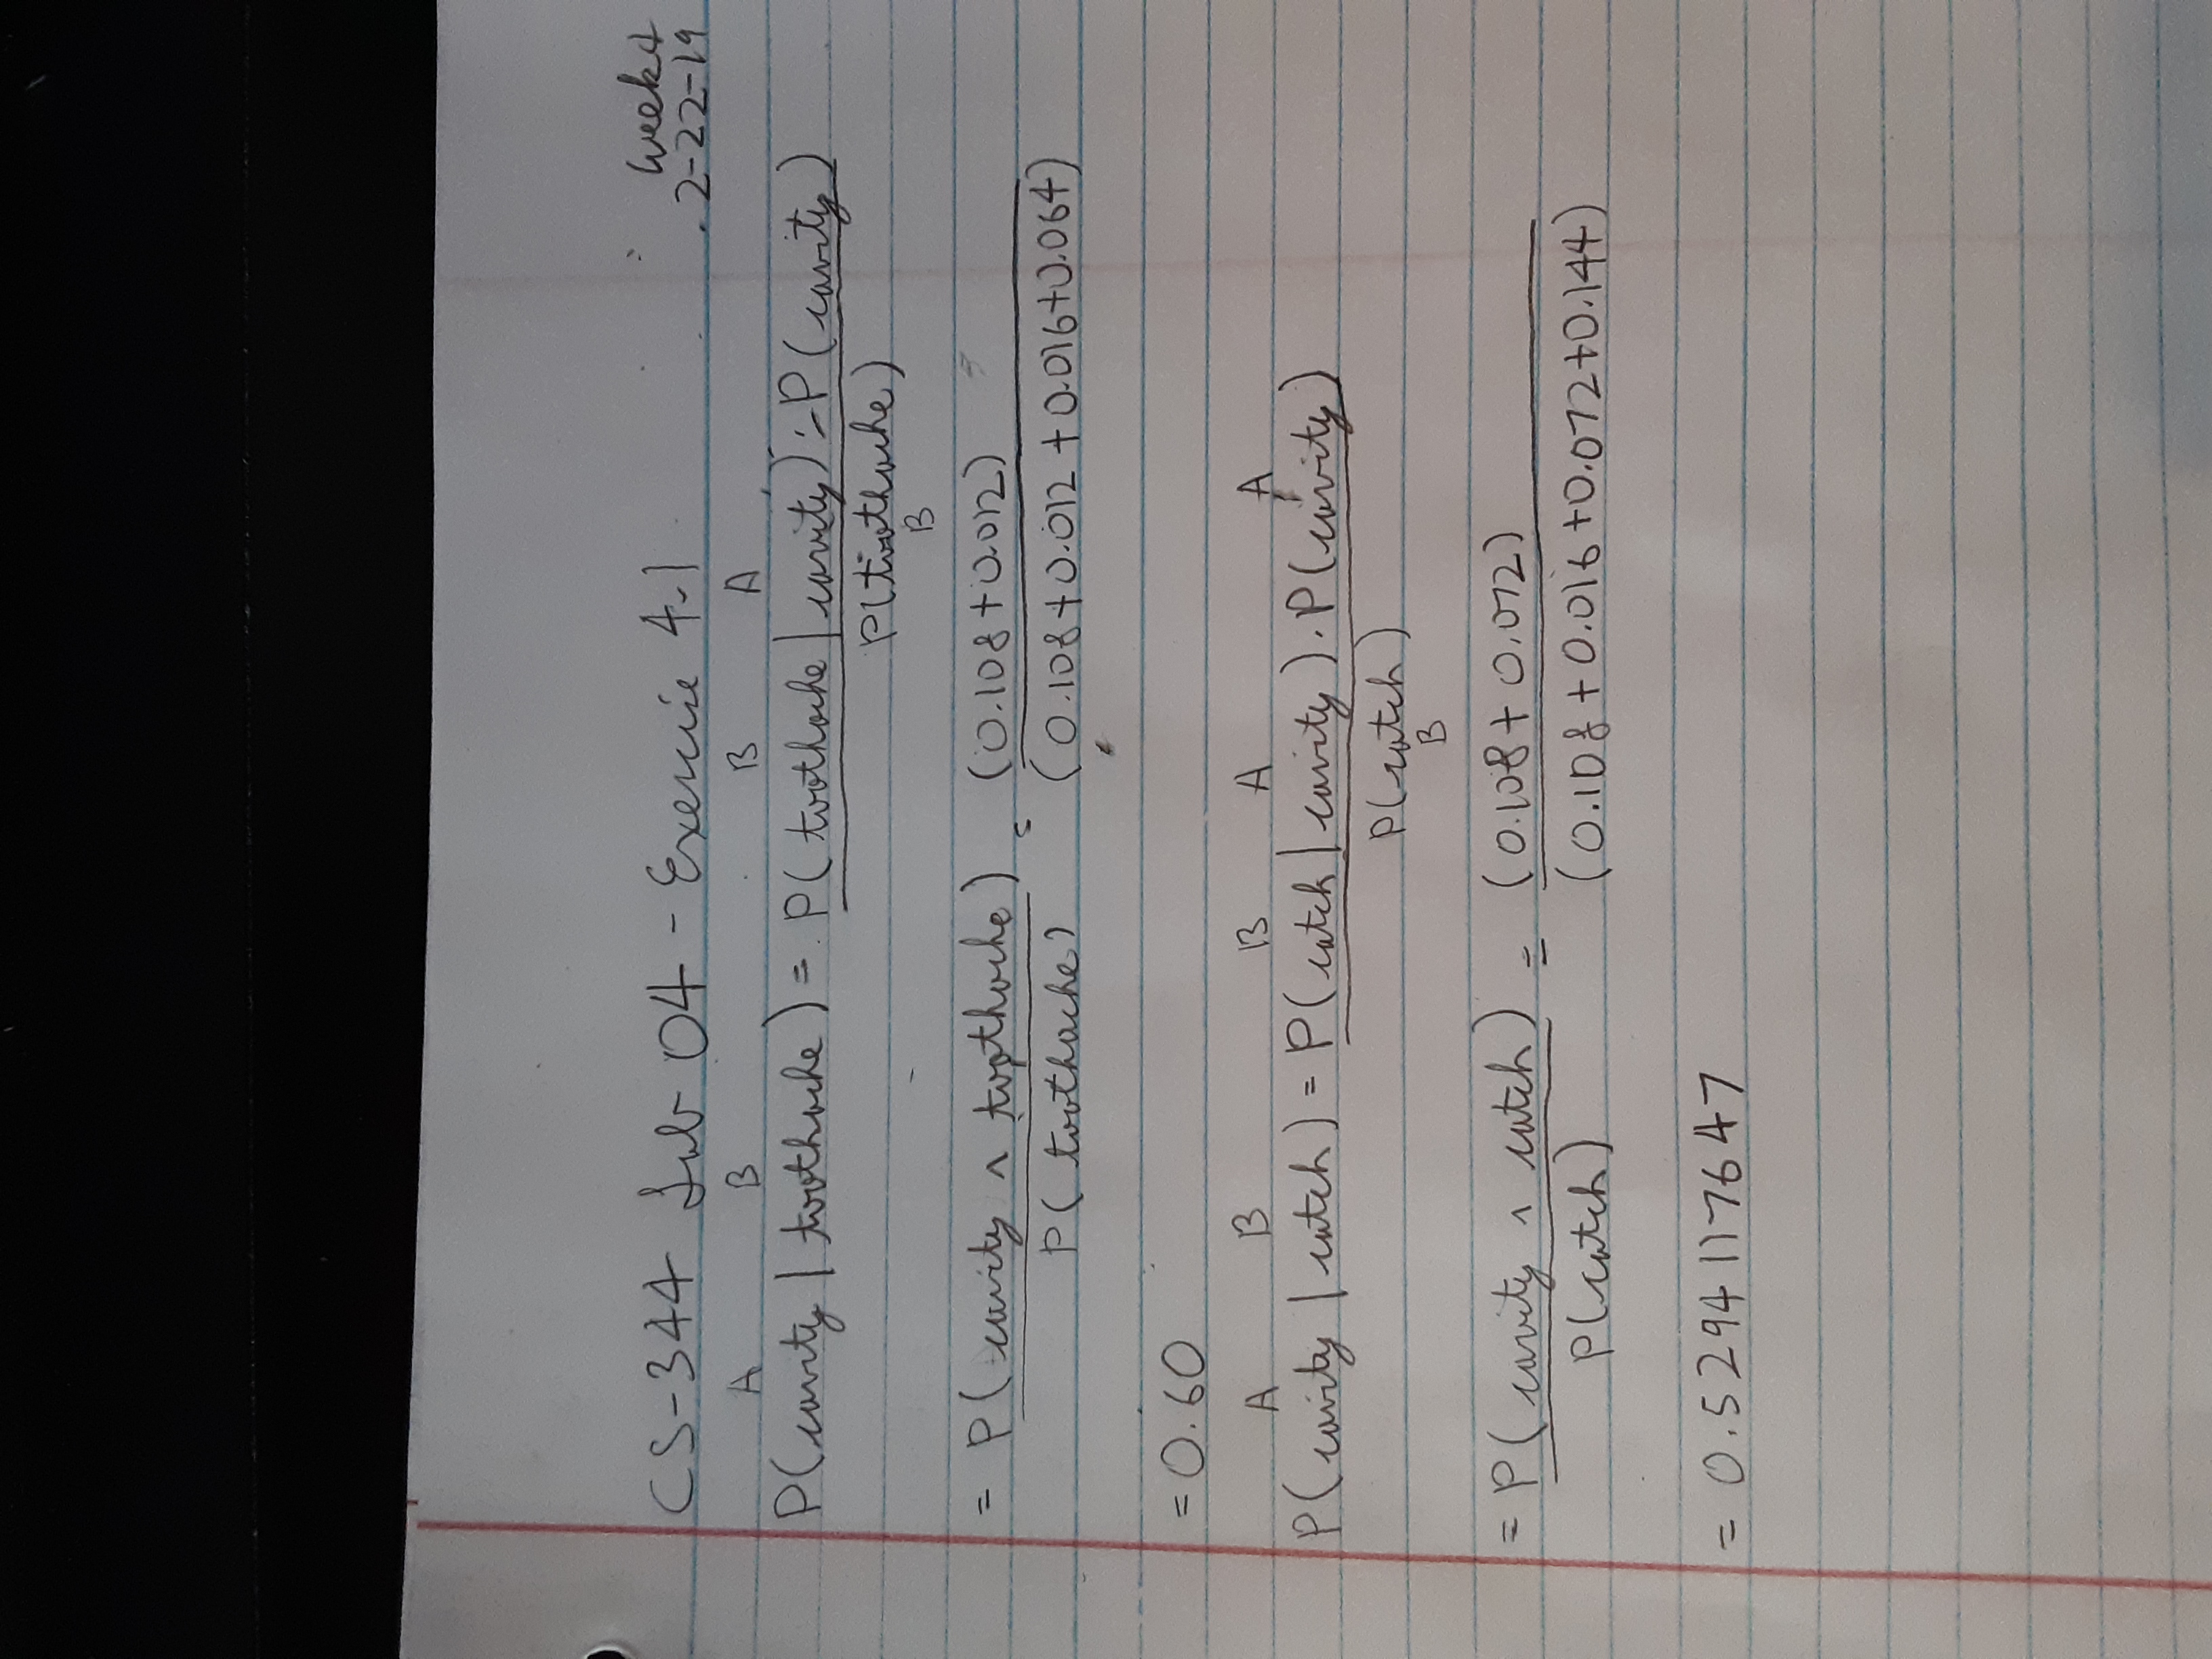 CS-344 Lab 04 - Exercise 4.1
Week 4
2-22-19
A B B A
P(cavity | toothache) = P(toothache | cavity) · P(cavity)
P(toothache)
B
= P(cavity ∧ toothache) = (0.108+0.012)
P(toothache) (0.108+0.012+0.016+0.064)
= 0.60
A B B A A
P(cavity | catch) = P(catch | cavity) · P(cavity)
P(catch)
B
= P(cavity ∧ catch) = (0.108+0.072)
P(catch) (0.108+0.016+0.072+0.144)
= 0.5294117647